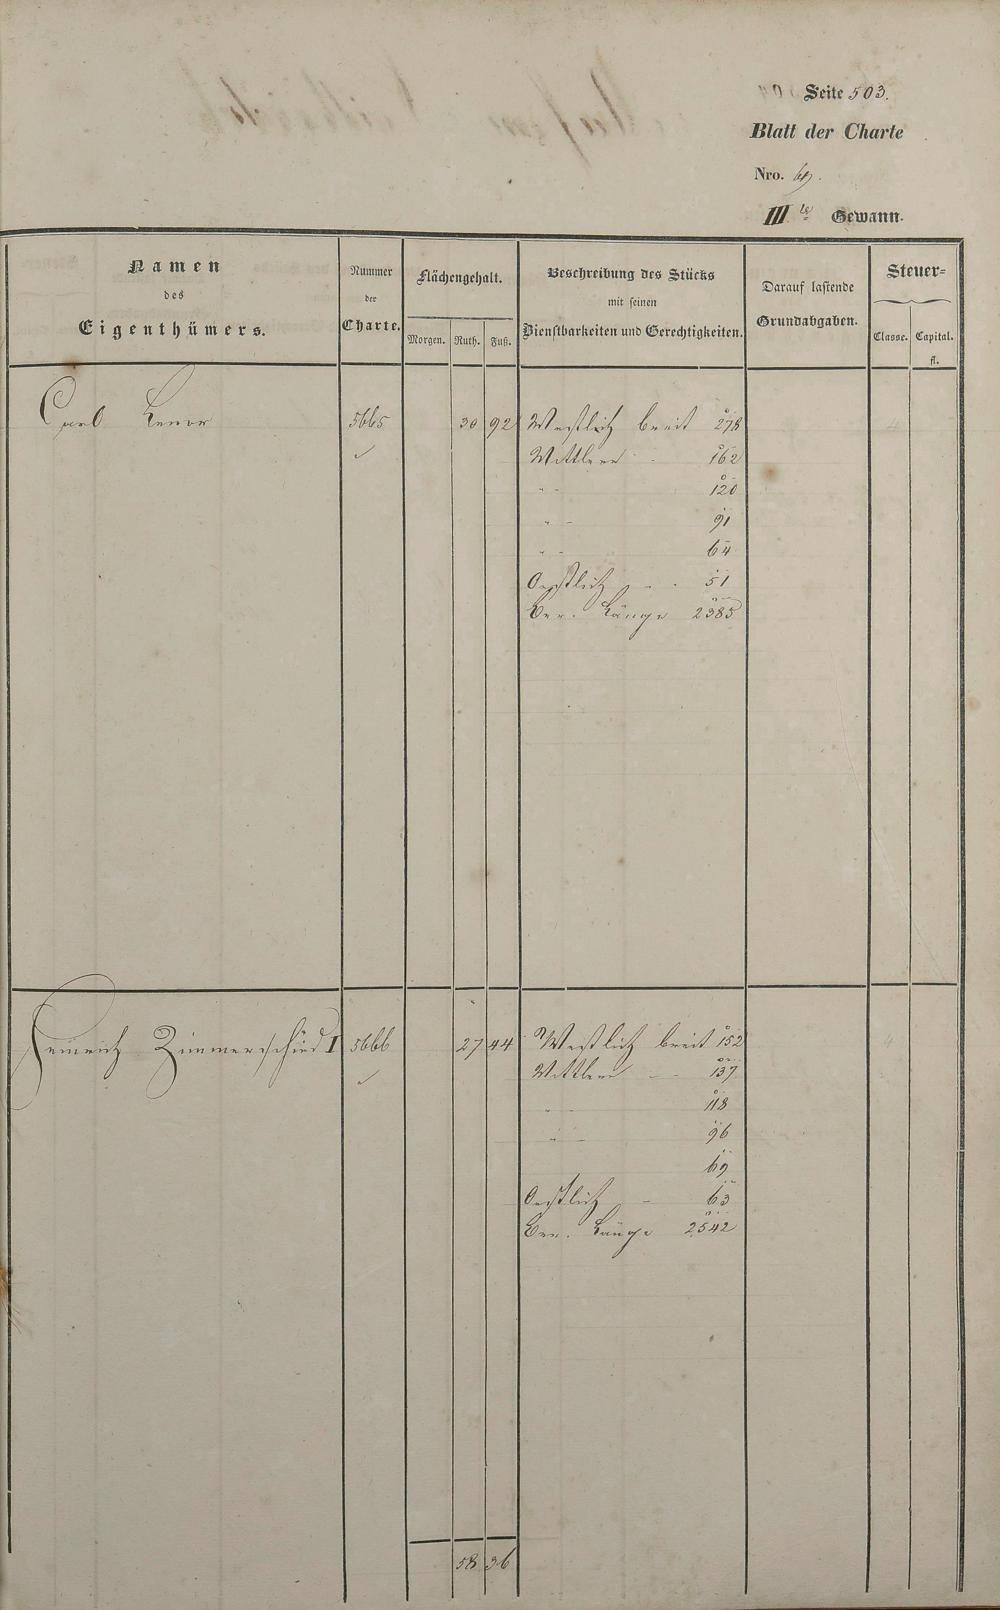 Seite 503.
Blatt der Charte
Nro. 69.
III te Gewann.
Namen
des
Eigenthümers.
Nummer
der
Charte.
Flächengehalt.
Morgen. Ruth. Fuß.
Beschreibung des Stücks
mit seinen
Dienstbarkeiten und Gerechtigkeiten.
Darauf lastende
Grundabgaben.
Steuer=
Classe. Capital.
fl.
Carl 5665 30 92 Westlich breit 278
Mittlere - 162
" - 120
" - 91
" - 64
Oestlich - - 51
Ber. Länge 2385
Heinrich Zimmerschied I 5666 27 44 Westlich breit 152
Mittlere - - 137
" - 118
" - 96
69
Oestlich - 63
Ber. Länge 2542
58 36